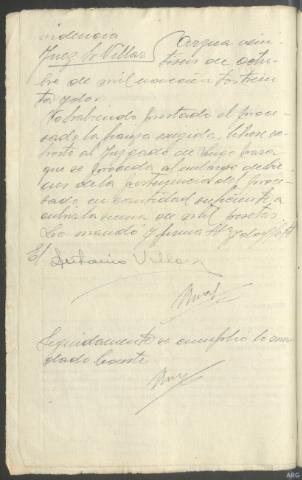 videncia
Juez Sr Villar } Arzua vein-
titres de octu-
bre de mil novecientos trein
ta y dos.
No habiendo prestado el proce-
sado la fianza exigida, librese ex
horto al Juzgado de Lugo para
que se proceda al embargo de bie-
nes de la pertenencia del proce-
sado, en cantidad suficiente a
cubrir la suma de mil pesetas
Lo mandó y firma Sª Sª y doy fé
Antonio Villar
Seguidamente se cumplio lo man
dado
ARG